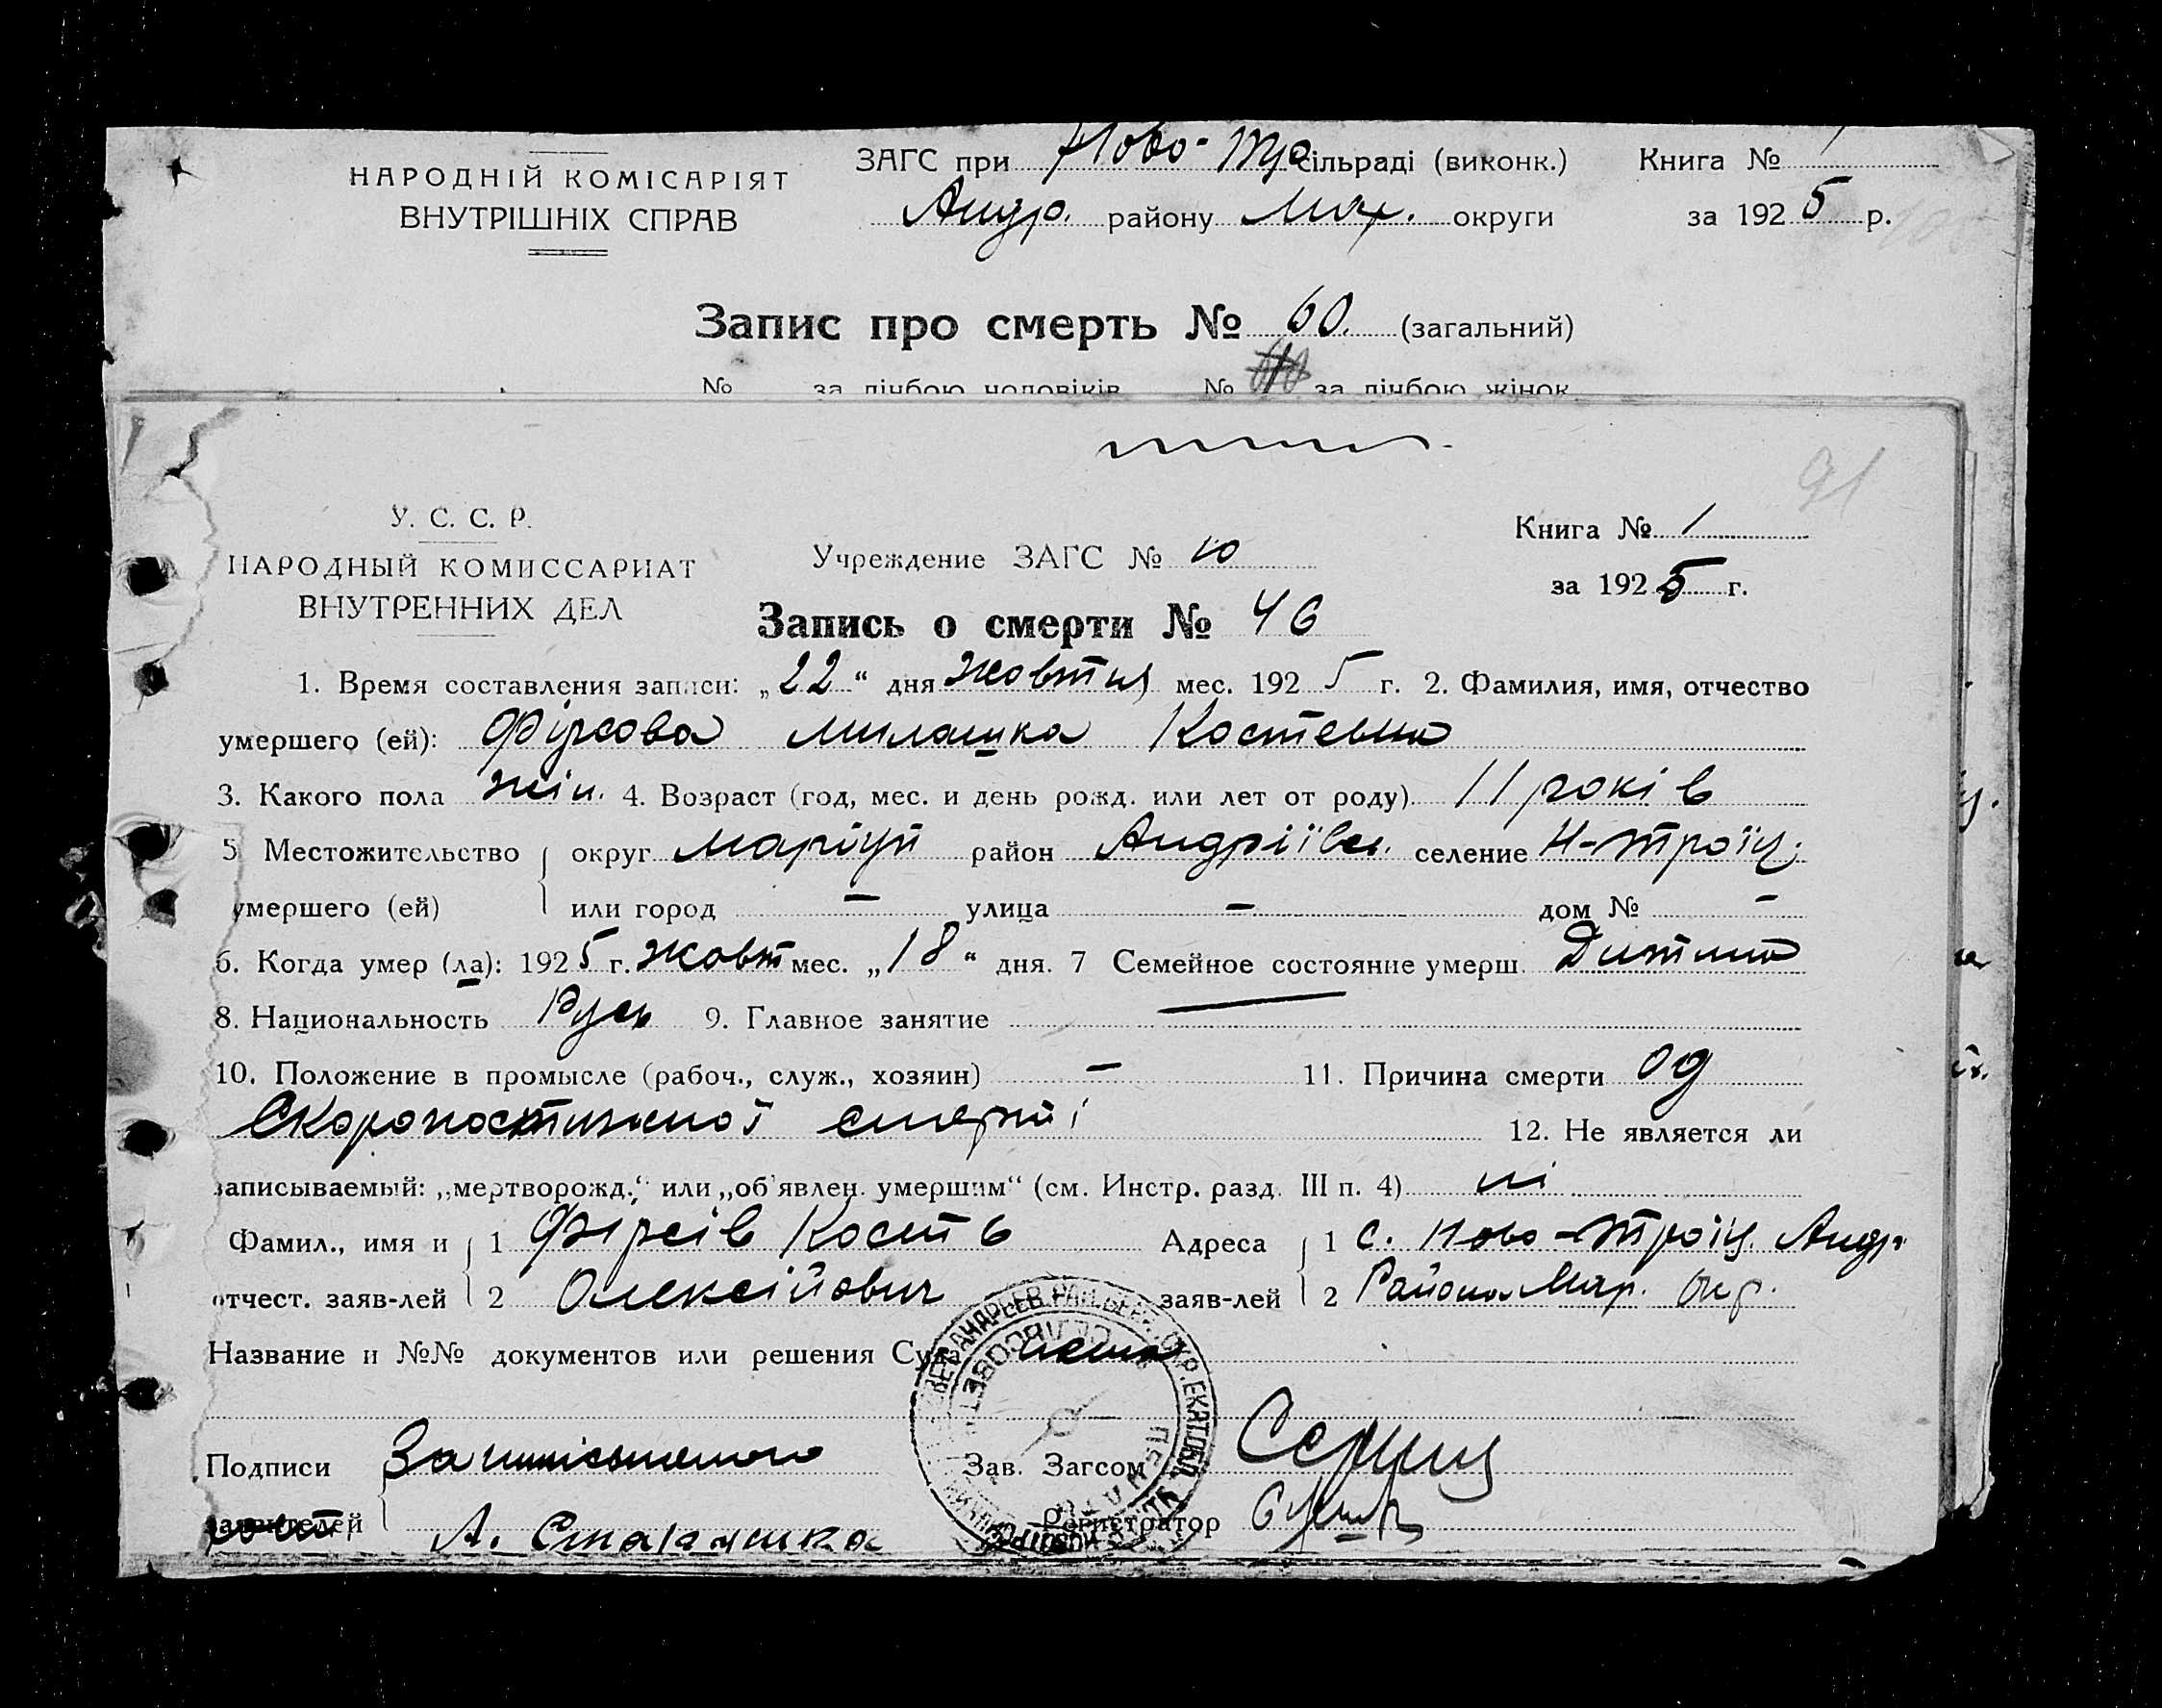 НАРОДНІЙ КОМІСАРІЯТ
ВНУТРІШНІХ СПРАВ
ЗАГС при Ново-Тро сільраді (виконк.)
Андр. району Мар. округи
Книга № 1
за 1925 р.
Запис про смерть № 60. (загальний)
№ за лічбою чоловіків № за лічбою жінок
91
У. С. С. Р.
НАРОДНЫЙ КОМИССАРИАТ
ВНУТРЕННИХ ДЕЛ
Учреждение ЗАГС № 10
Книга № 1
за 1925 г.
Запись о смерти № 46
1. Время составления записи: „22“ дня жовтня мес. 1925 г. 2. Фамилия, имя, отчество
умершего (ей): Фірсова Милашка Костевна
3. Какого пола жін. 4. Возраст (год, мес. и день рожд. или лет от роду) 11 років
5 Местожительство округ Маріуп район Андріївс. селение Н-Троїц.
умершего (ей) или город — улица — дом № —
6. Когда умер (ла): 1925 г. жовт мес. „18“ дня. 7 Семейное состояние умерш. Дитина
8. Национальность Русь 9. Главное занятие —
10. Положение в промысле (рабоч., служ., хозяин) — 11. Причина смерти од
Скоропостижної смерті 12. Не является ли
записываемый: „мертворожд.“ или „об'явлен. умершим“ (см. Инстр. разд. III п. 4) ні
Фамил., имя и 1 Фірсів Кость Адреса 1 с. Ново-Троїц. Андр.
отчест. заяв-лей 2 Олексійович заяв-лей 2 Района Мар. Окр.
Название и №№ документов или решения Суда нема
Подписи За Зав. Загсом
заявителей А. Регистратор